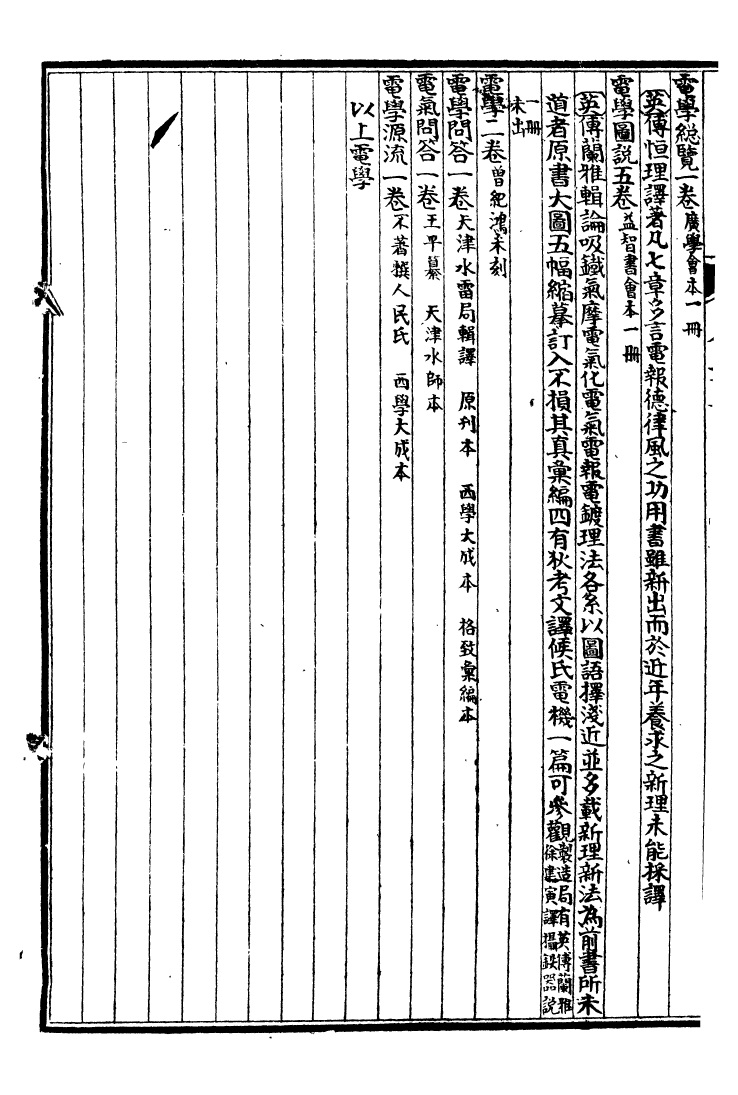 電學總覽一卷廣學會本一冊
英傅恒理譯著凡七章多言電報德律風之功用書雖新出而於近年養求之新理未能採譯
電學圖說五卷益智書會本一冊
英傅蘭雅輯論吸鐵氣摩電氣化電氣電報電鍍理法各系以圖語擇淺近並多載新理新法為前書所未
道者原書大圖五幅縮摹訂入不損其真彙編四有狄考文譯候氏電機一篇可參觀製造局有英傅蘭雅徐建寅譯攝鐵器說
一冊未出
電學二卷曾紀鴻未刻
電學問答一卷天津水雷局輯譯 原刊本 西學大成本 格致彙編本
電氣問答一卷王平纂 天津水師本
電學源流一卷不著撰人民氏 西學大成本
以上電學